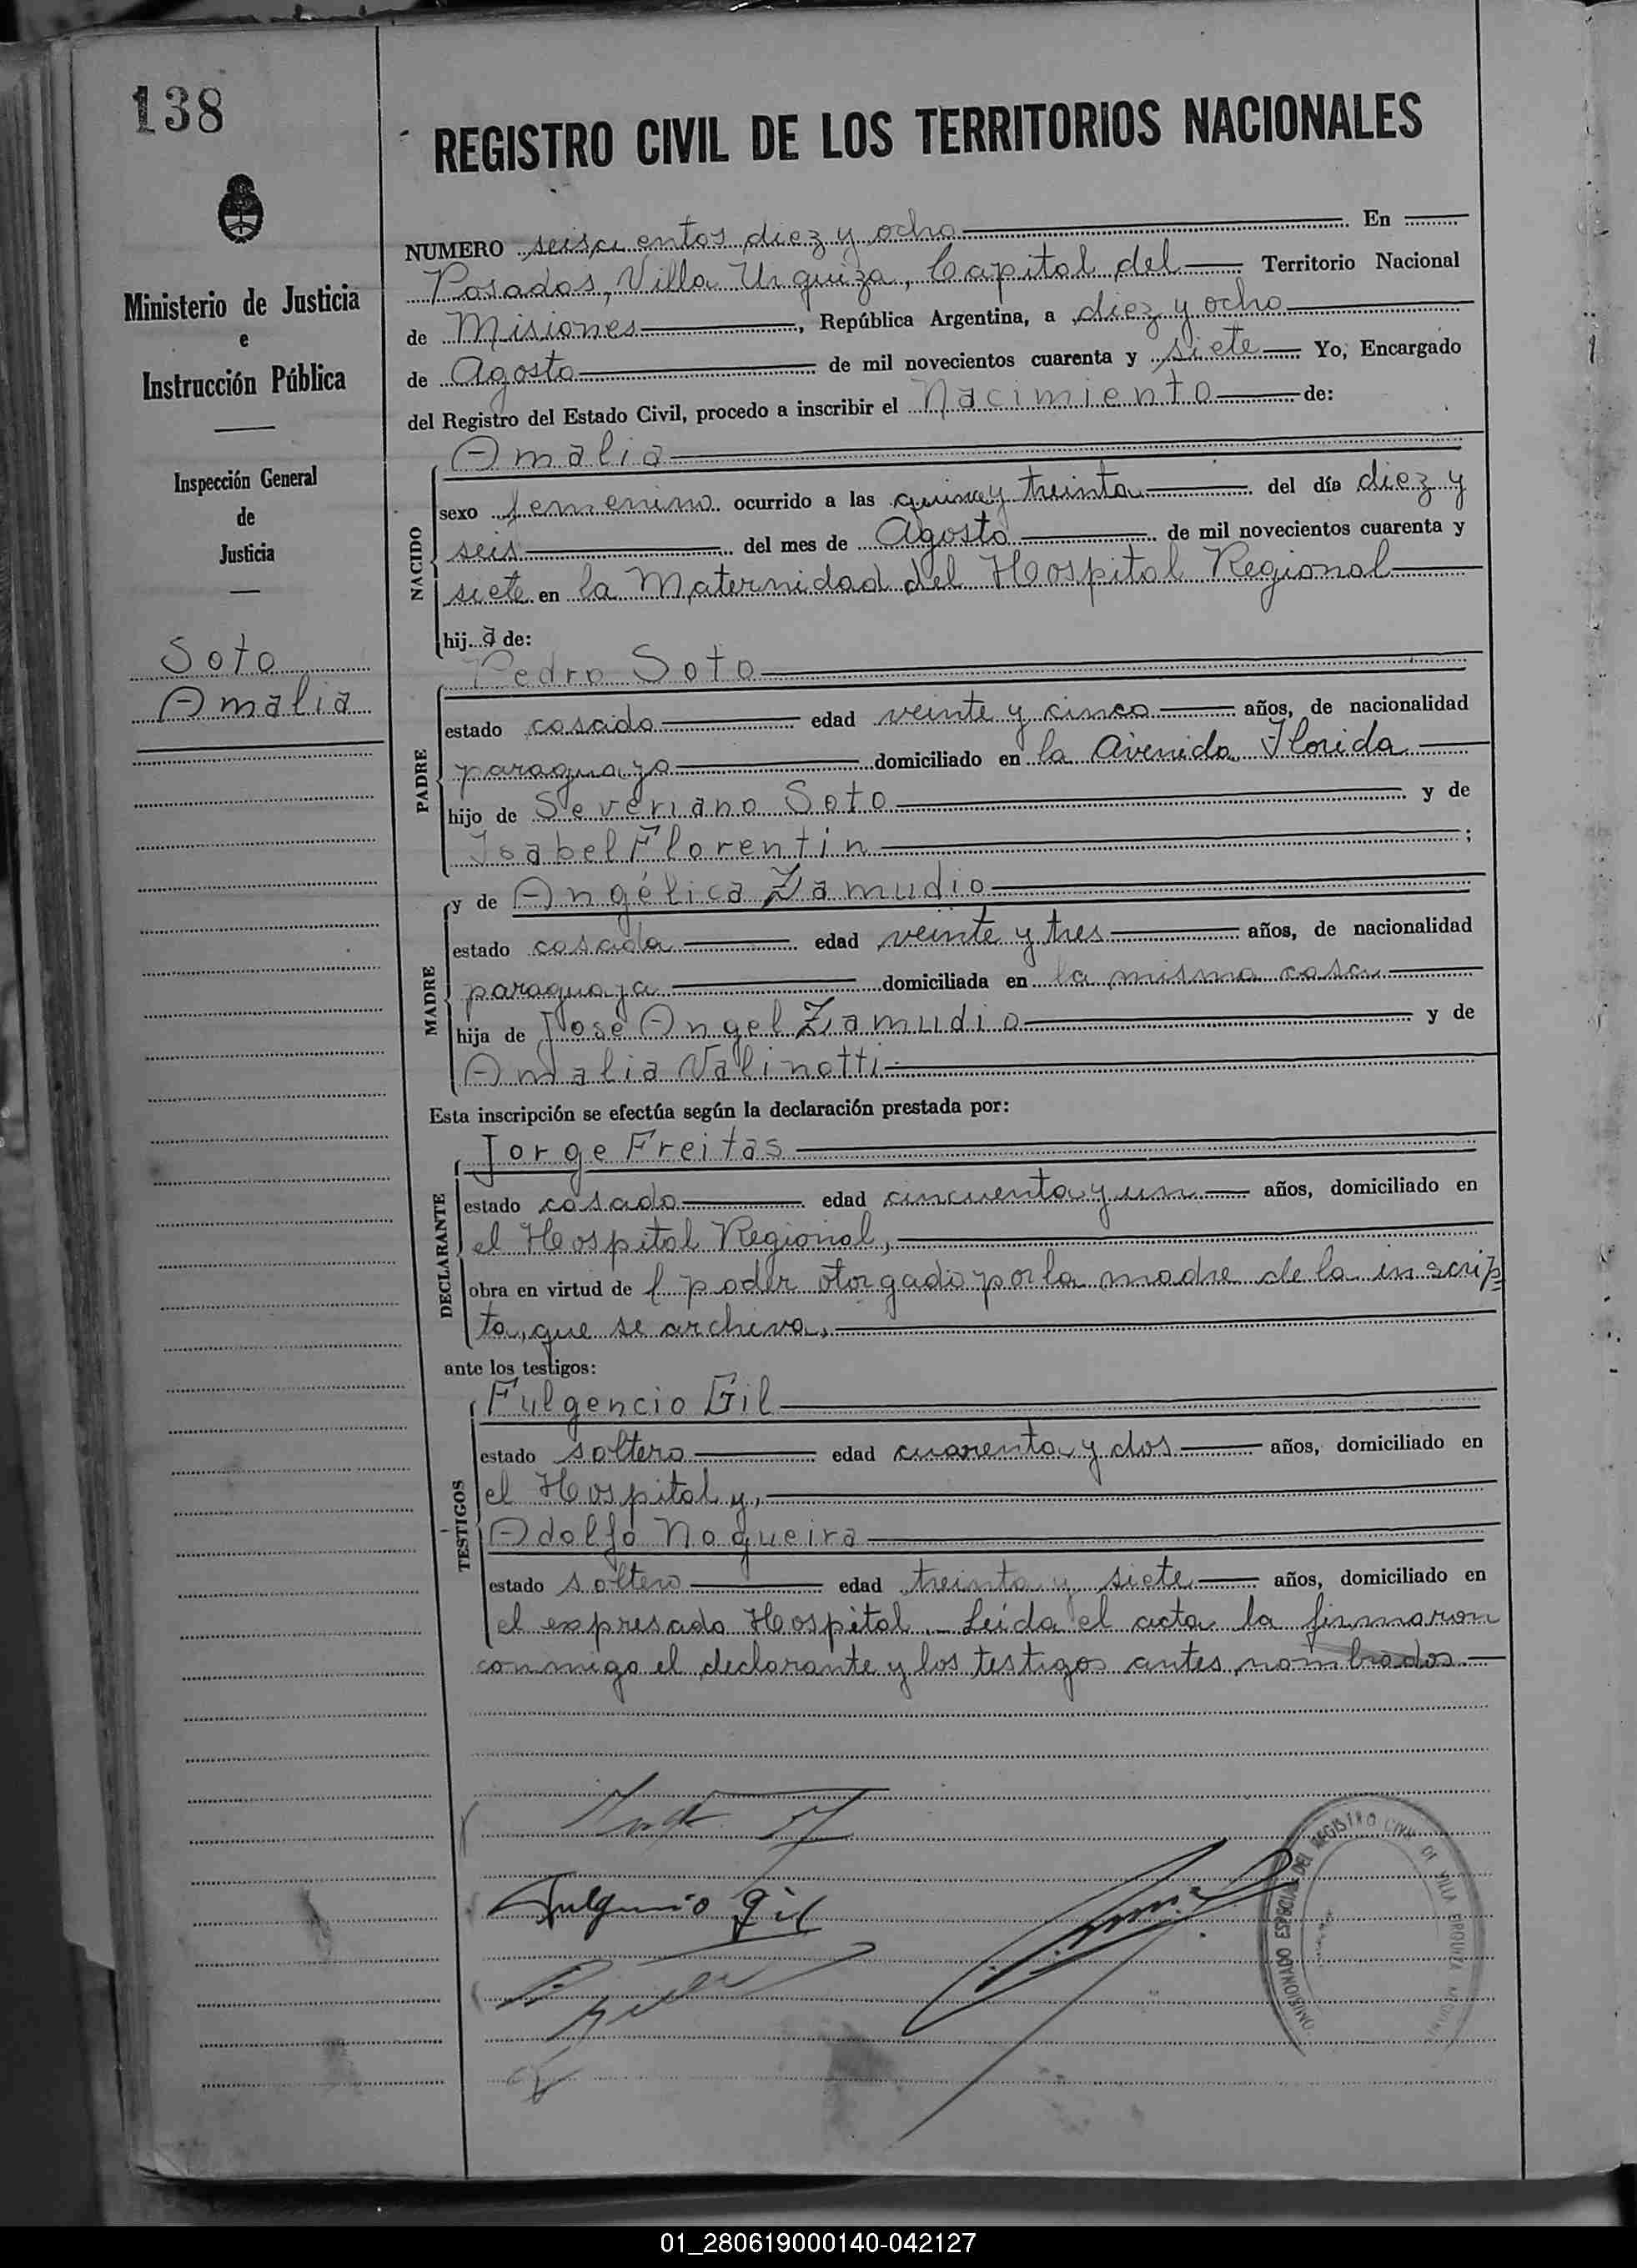 138
REGISTRO CIVIL DE LOS TERRITORIOS NACIONALES
Ministerio de Justicia
e
Instrucción Pública
Inspección General
de
Justicia
Soto
Amalia
NUMERO seiscientos diez y ocho En
Posadas, Villa Urquiza, Capital del Territorio Nacional
de Misiones, República Argentina, a diez y ocho
de Agosto de mil novecientos cuarenta y siete Yo, Encargado
del Registro del Estado Civil, procedo a inscribir el Nacimiento de:
NACIDO
Amalia
sexo femenino ocurrido a las quince y treinta del día diez y
seis del mes de Agosto de mil novecientos cuarenta y
siete en la Maternidad del Hospital Regional
hija de:
PADRE
Pedro Soto
estado casado edad veinte y cinco años, de nacionalidad
paraguayo domiciliado en la Avenida Florida
hijo de Severiano Soto y de
Isabel Florentin ;
MADRE
y de Angélica Zamudio
estado casada edad veinte y tres años, de nacionalidad
paraguaya domiciliada en la misma casa
hija de José Angel Zamudio y de
Amalia Valinotti
Esta inscripción se efectúa según la declaración prestada por:
DECLARANTE
Jorge Freitas
estado casado edad cincuenta y un años, domiciliado en
el Hospital Regional,
obra en virtud de l poder otorgado por la madre de la inscrip
ta, que se archiva,
ante los testigos:
TESTIGOS
Fulgencio Gil
estado soltero edad cuarenta y dos años, domiciliado en
el Hospital y,
Adolfo Nogueira
estado soltero edad treinta y siete años, domiciliado en
el expresado Hospital.- Leída el acta la firmaron
conmigo el declarante y los testigos antes nombrados.-
Fulgencio Gil
COMISIONADO ESPECIAL DEL REGISTRO CIVIL DE VILLA URQUIZA MISIONES
01_280619000140-042127